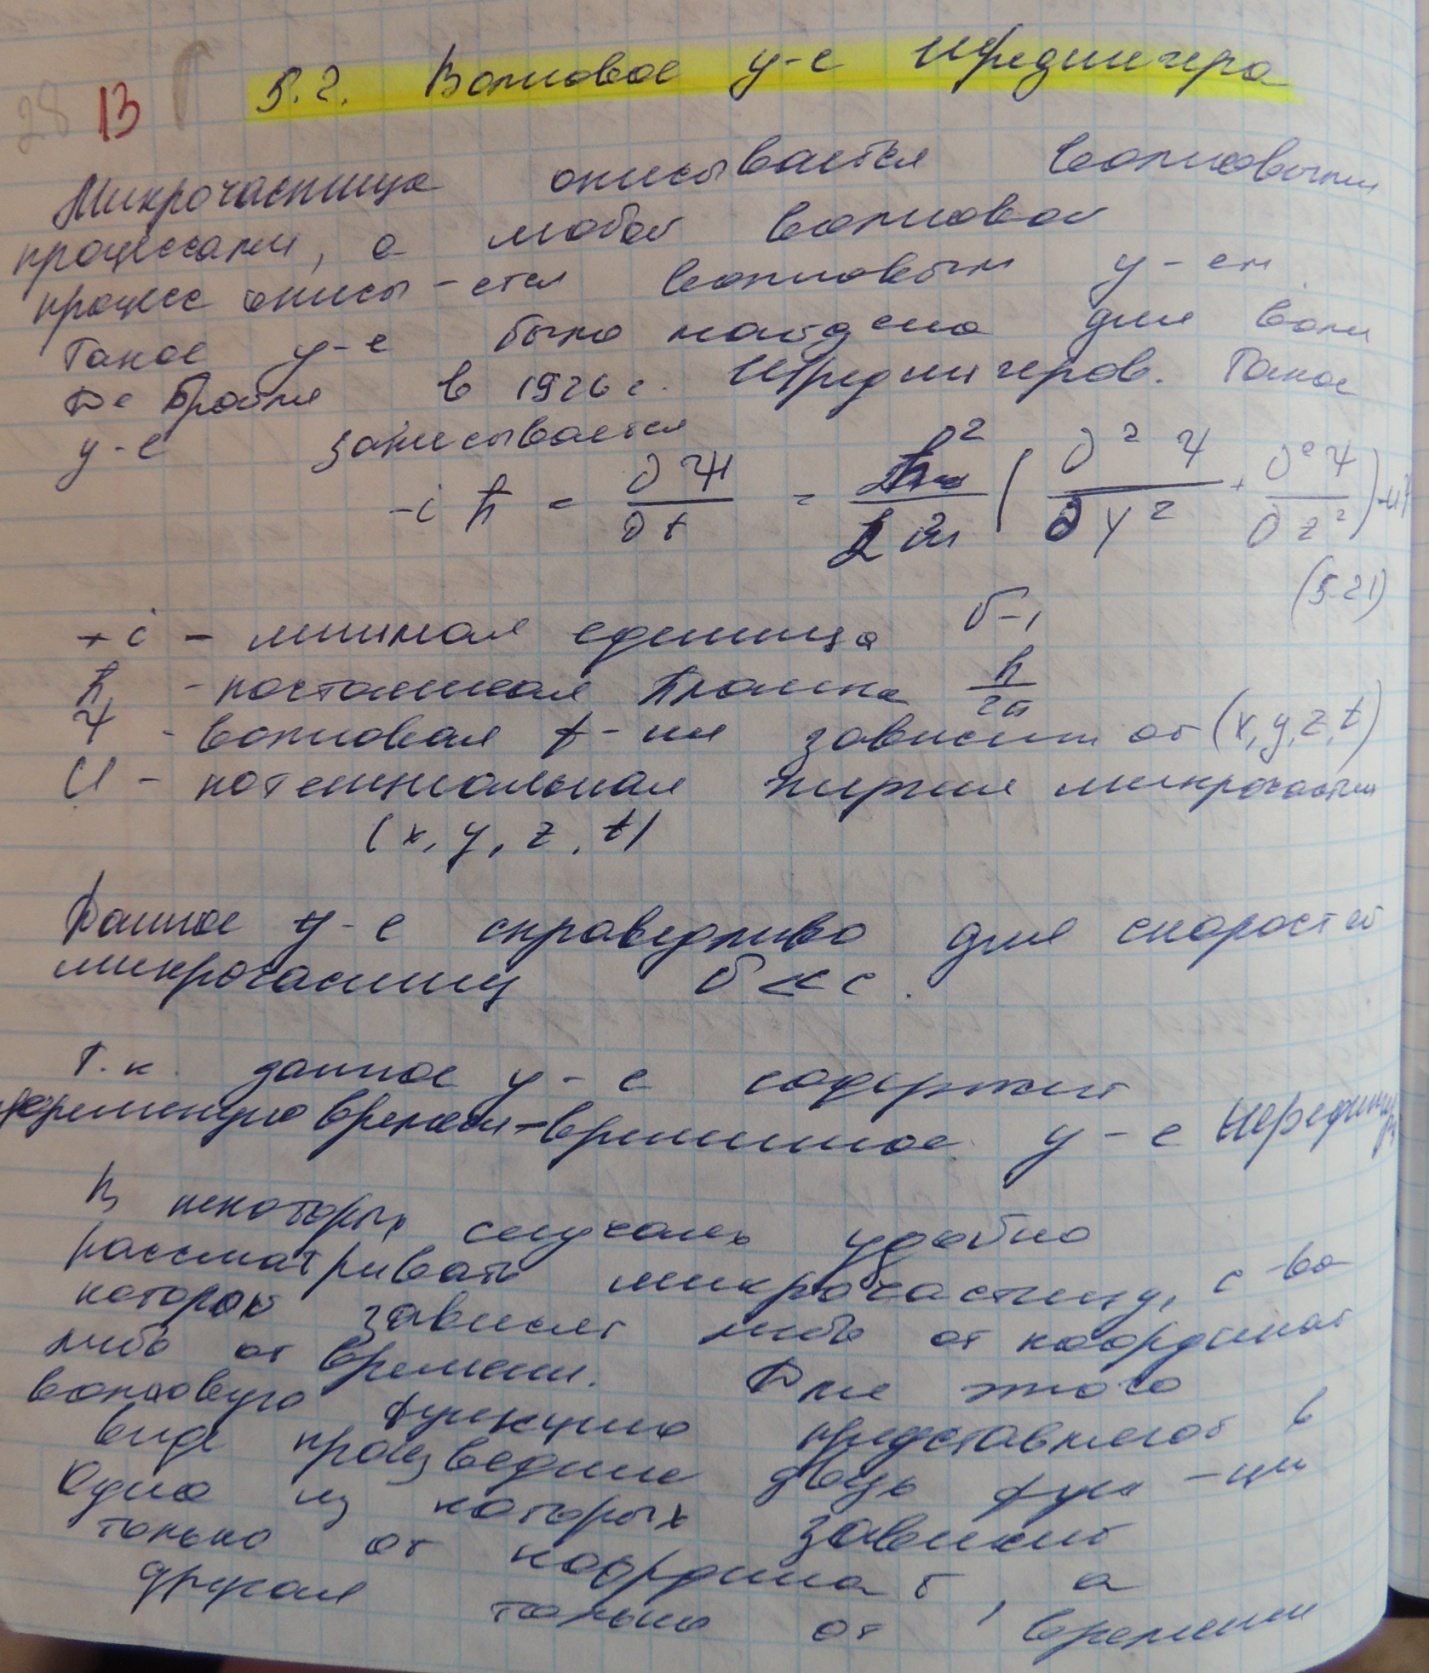 28 13
5.2. Волновое у-е Шредингера
Микрочастица описывается волновыми
процессами, а любой волновой
процесс описы-ется волновым у-ем
Такое у-е было найдено для волн
Де Бройля в 1926 г. Шредингеров. Такое
у-е записывается
-i ħ = ∂Ψ/∂t = ħ²/2m (∂²Ψ/∂y² + ∂²Ψ/∂z²)
(5.21)
+i - мнимая единица √-1
ħ - постоянная Планка h/2π
Ψ - волновая f-ия зависит от (x, y, z, t)
U - потенциальная энергия микрочастиц
(x, y, z, t)
Данное у-е справедливо для скоростей
микрочастиц v << c.
Т.к. данное у-е содержит
переменную времени-временное у-е Шрединг
В некоторых случаях удобно
рассматривать микрочастицу, с-ва
которой зависят либо от координат
либо от времени. Для этого
волновую функцию представляют в
виде произведение двух фун-ции
Одна из которых зависит
только от координат, а
другая только от времени